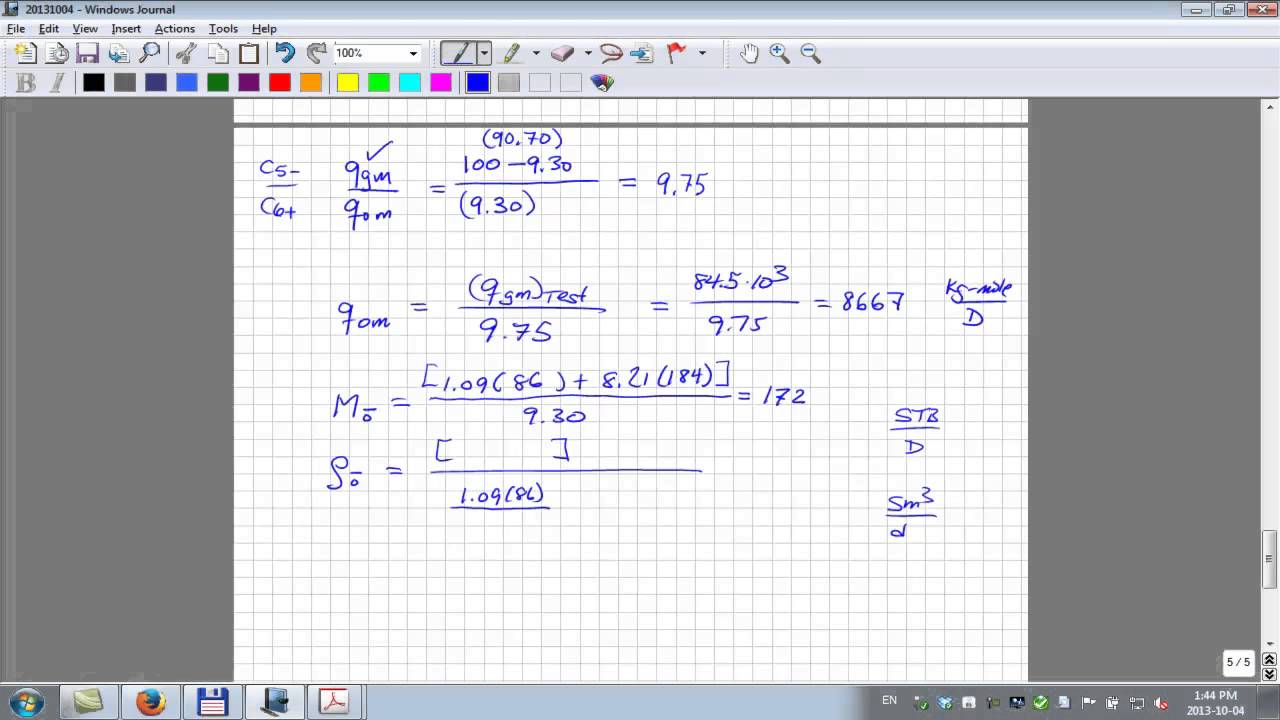 20131004 - Windows Journal
File Edit View Insert Actions Tools Help
100%
B I
(90.70)
C5- / C6+ qgm / qom = 100 - 9.30 / (9.30) = 9.75
qom = (qgm)Test / 9.75 = 84.5·10³ / 9.75 = 8667 kg-mole / D
Mō = [1.09(86) + 8.21(184)] / 9.30 = 172
STB / D
ρō = [ ] / 1.09(86)
Sm³ / d
5 / 5
EN
1:44 PM
2013-10-04